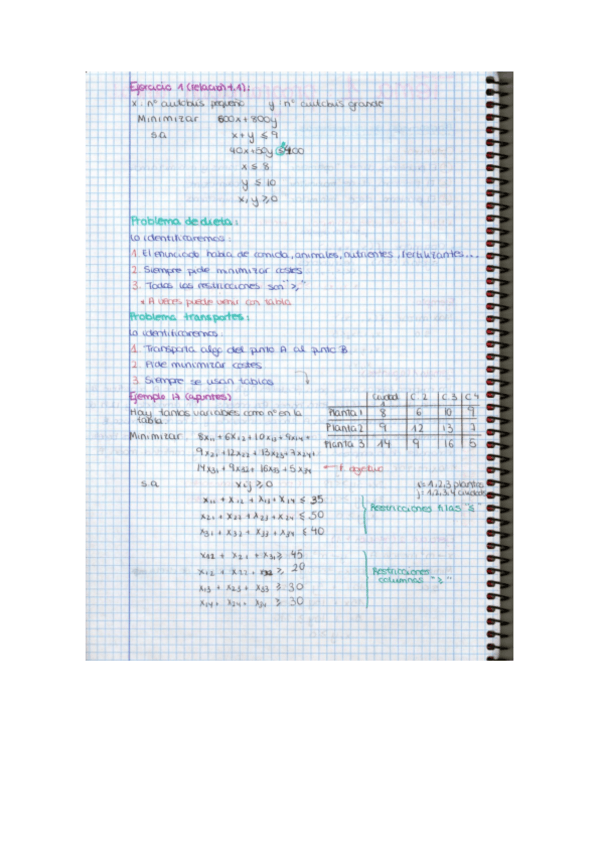 Ejercicio 1 (relación 1.1):
x: nº autobus pequeño y nº autobus grande
Minimizar 600x + 800y
s.a x + y ≤ 9
40x + 50y ≥ 400
x ≤ 8
y ≤ 10
x, y ≥ 0
Problema de dieta:
Lo identificaremos:
1. El enunciado habla de comida, animales, nutrientes, fertilizantes...
2. Siempre pide minimizar costes
3. Todas las restricciones son "≥"
* A veces puede venir con tabla
Problema transportes:
Lo identificaremos:
1. Transporta algo del punto A al punto B
2. Pide minimizar costes
3. Siempre se usan tablas
Ejemplo 17 (apuntes)
Hay tantas variables como nº en la tabla.
Ciudad 1 C. 2 C. 3 C 4
Planta 1 8 6 10 9
Planta 2 9 12 13 7
Planta 3 14 9 16 5
Minimizar 8x11 + 6x12 + 10x13 + 9x14 +
9x21 + 12x22 + 13x23 + 7x24 +
14x31 + 9x32 + 16x33 + 5x34 ← f. objetivo
s.a xij ≥ 0
i = 1, 2, 3 plantas
j = 1, 2, 3, 4 ciudades
x11 + x12 + x13 + x14 ≤ 35
x21 + x22 + x23 + x24 ≤ 50
x31 + x32 + x33 + x34 ≤ 40
Restricciones filas "≤"
+ x21 + x31 ≥ 45
x12 + x22 + ≥ 20
x13 + x23 + x33 ≥ 30
x14 + x24 + x34 ≥ 30
Restricciones
columnas "≥"